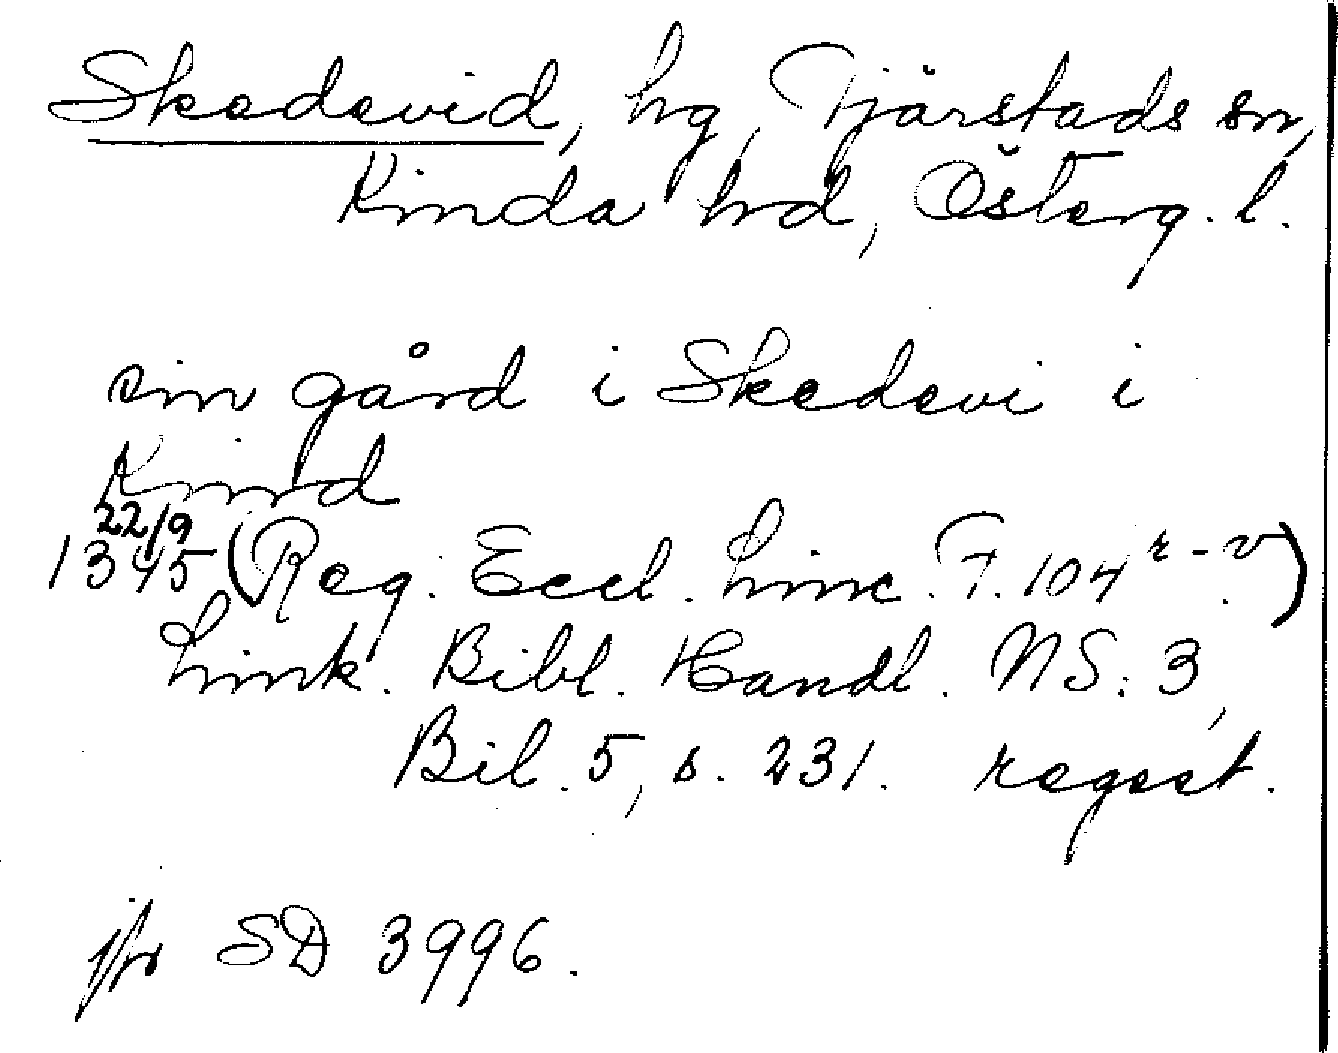 Skedevid, hg, Tjärstads sn,
Kinda hd, Österg. l.
sin gård i Skedevi i
Kind
22/9
1345 (Reg. Eccl. Linc. F. 104 r-v)
Link. Bibl. Handl. NS: 3,
Bil. 5, s. 231. regest.
jfr SD 3996.